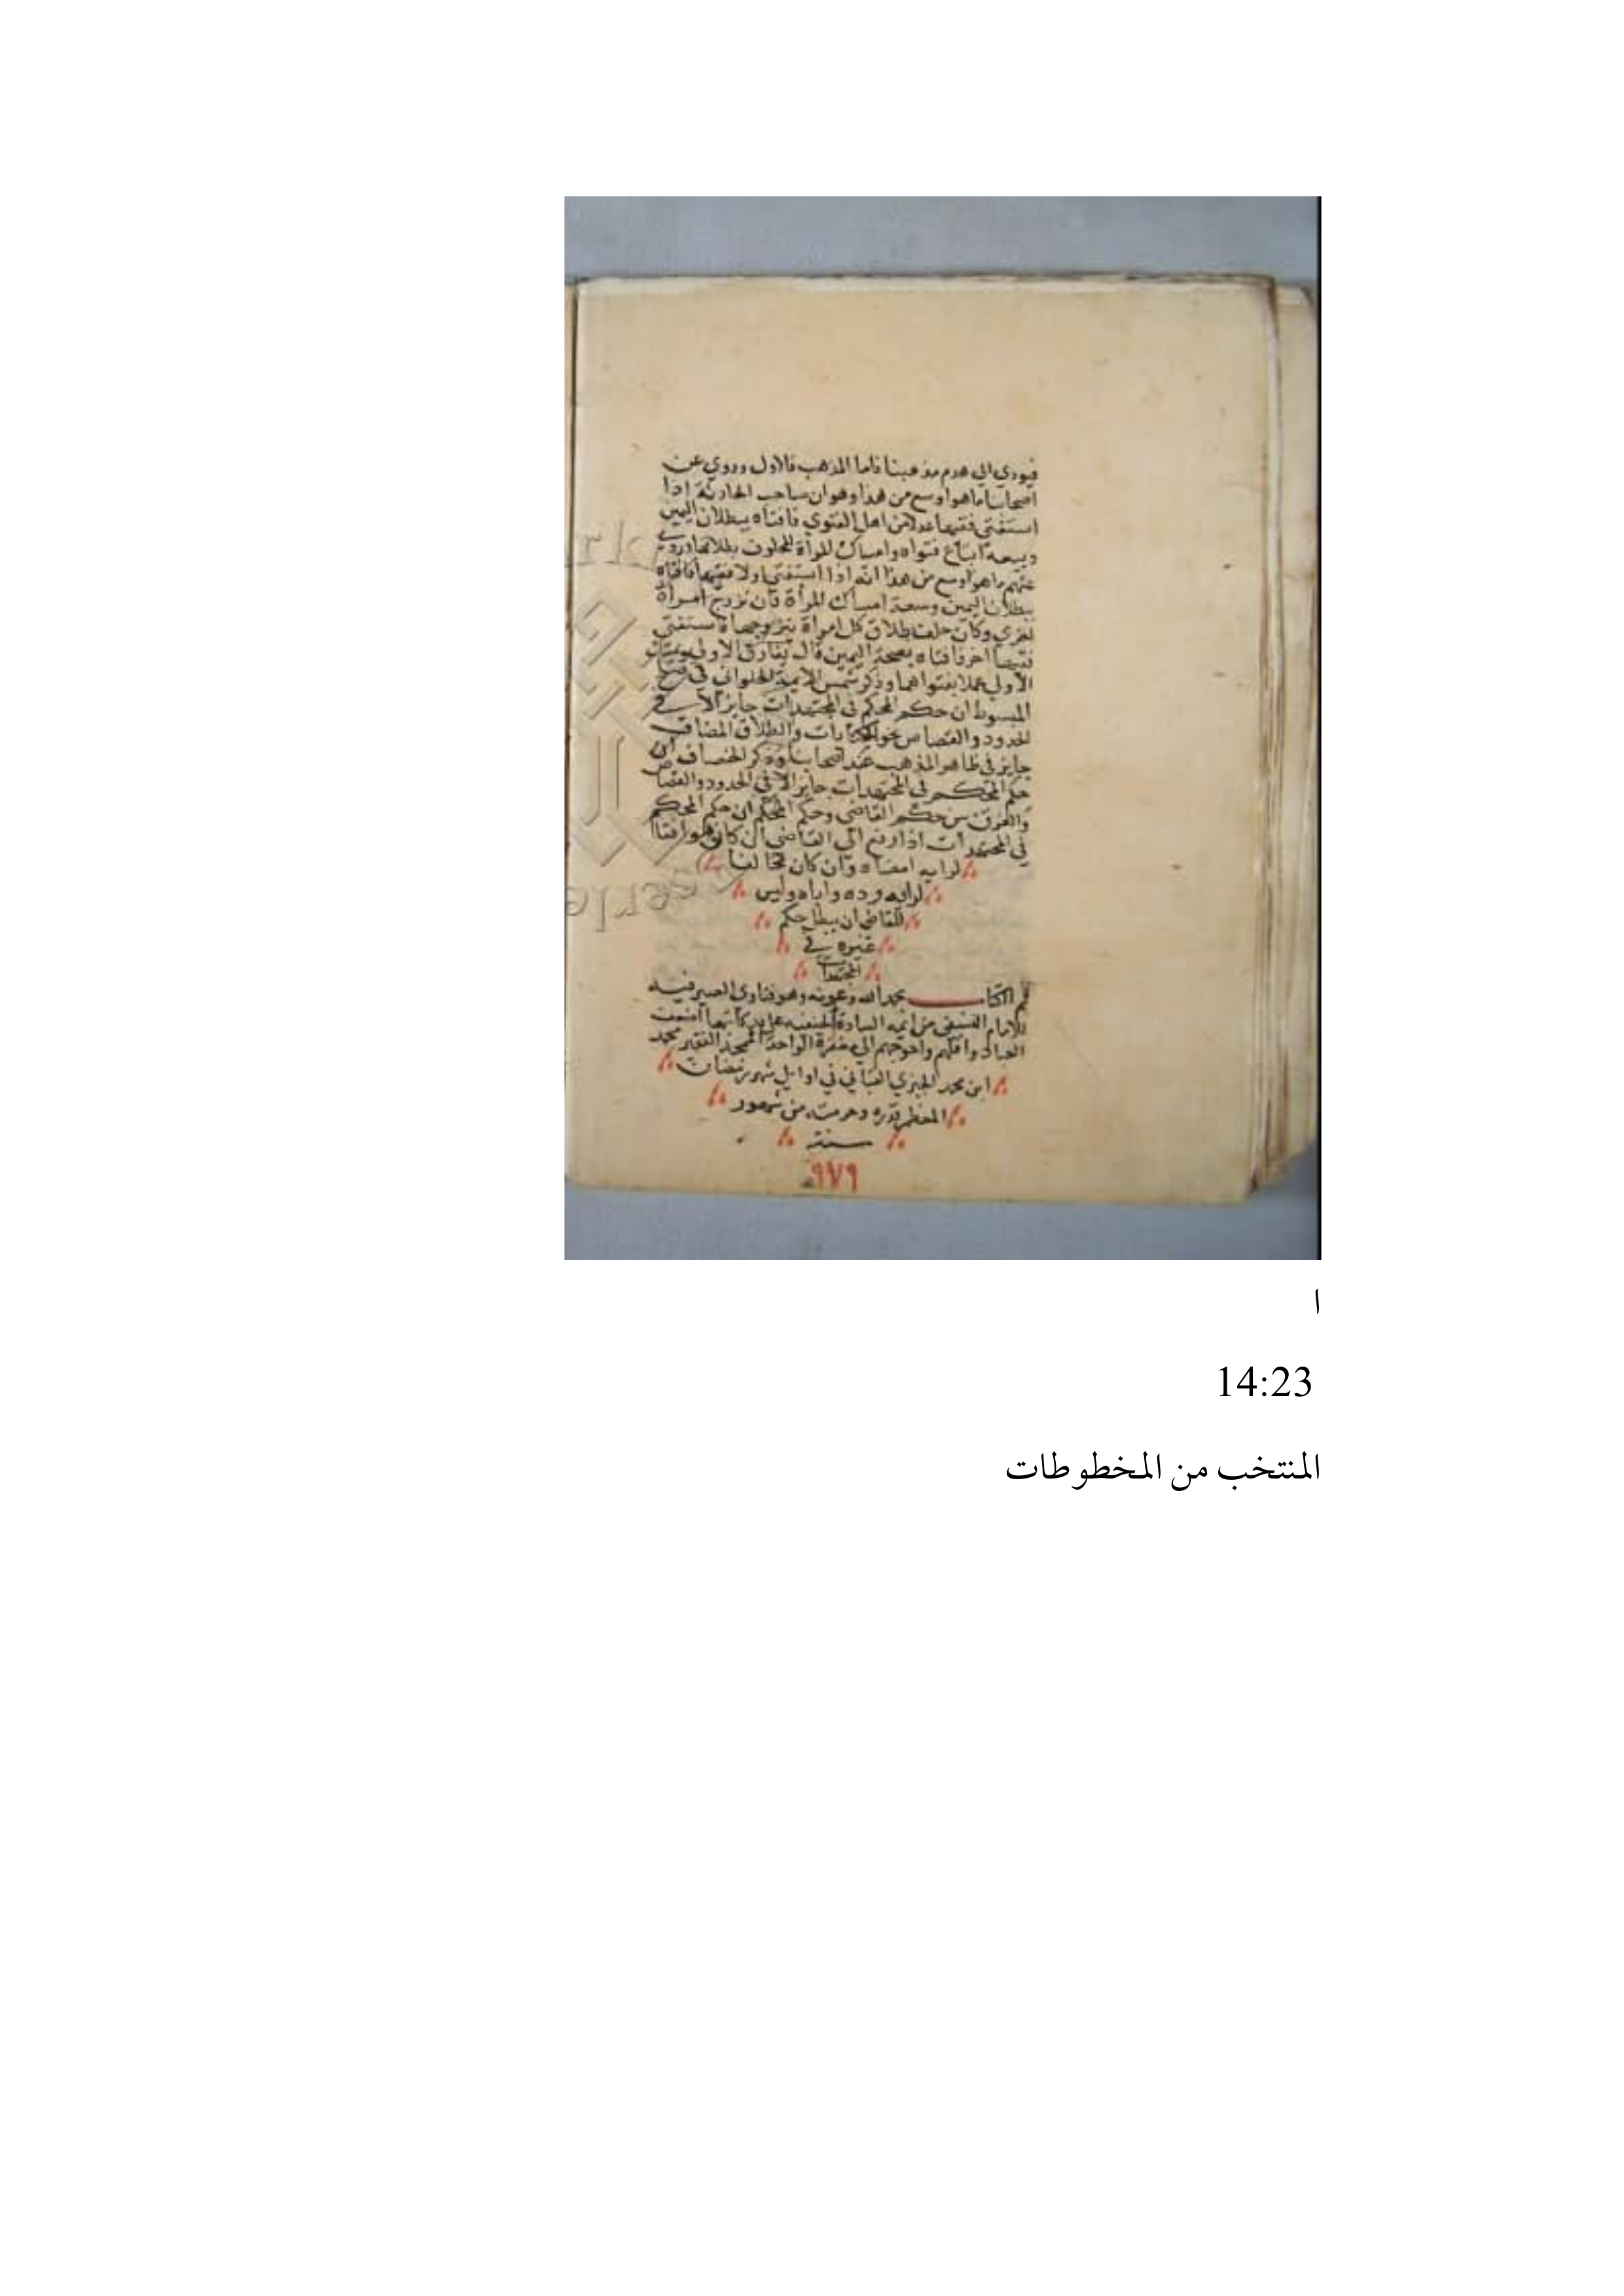 فيودي الي هدم مذهبنا فاما المذهب فالاول وروي عن
اصحابنا ما هو اوسع من هذا وهو ان صاحب الحادثة إذا
استفتى فقيها عدلا من اهل الفتوي فافتاه ببطلان اليمين
وسعه اتباع فتواه وامساك المرأة المحلوف بطلاقها وروي
عنهم ما هو اوسع من هذا انه اذا استفتي اولا فقيها فافتاه
ببطلان اليمين وسعه امساك المرأة فان تزوج امرأة
اخري وكان حلف بطلاق كل امرأة يتزوجها فاستفتى
فقيها اخر فافتاه بصحة اليمين قال يفارق الاولي
الاولي عملا بفتواهما وذكر شمس الايمة الحلواني في
المبسوط ان حكم المحكم في المجتهدات جايز الا في
الحدود والقصاص نحو الكنايات والطلاق المضاف
جايز في ظاهر المذهب عند اصحابنا وذكر الخصاف ان
حكم المحكم في المجتهدات جايز الا في الحدود والقصاص
والفرق بين حكم القاضي وحكم المحكم ان حكم المحكم
في المجتهدات اذا رفع الى القاضي ان كان موافقا
لرايه امضاه وان كان مخالفا
لرايه رده واباه وليس
للقاضي ان يبطل حكم
غيره في
المجتهدات
تم الكتاب بحمد الله وعونه وهو فتاوى الصيرفيه
للامام النسفي من ايمه السادة الحنفيه على يد كاتبها اضعف
العباد واقلهم واحوجهم الي مغفرة الواحد الفقير محمد
ابن محمد الجيزي في اوايل شهر رمضان
المعظم قدره وحرمته من شهور
سنة
٩٧٩
ا
14:23
المنتخب من المخطوطات